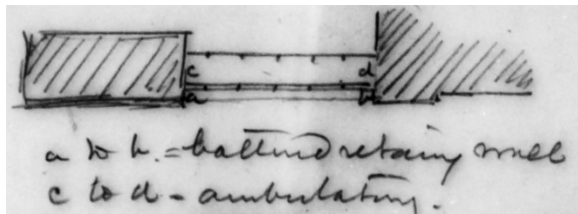 c d
a b
a to b. = battered retaining wall
c to d - ambulatory.